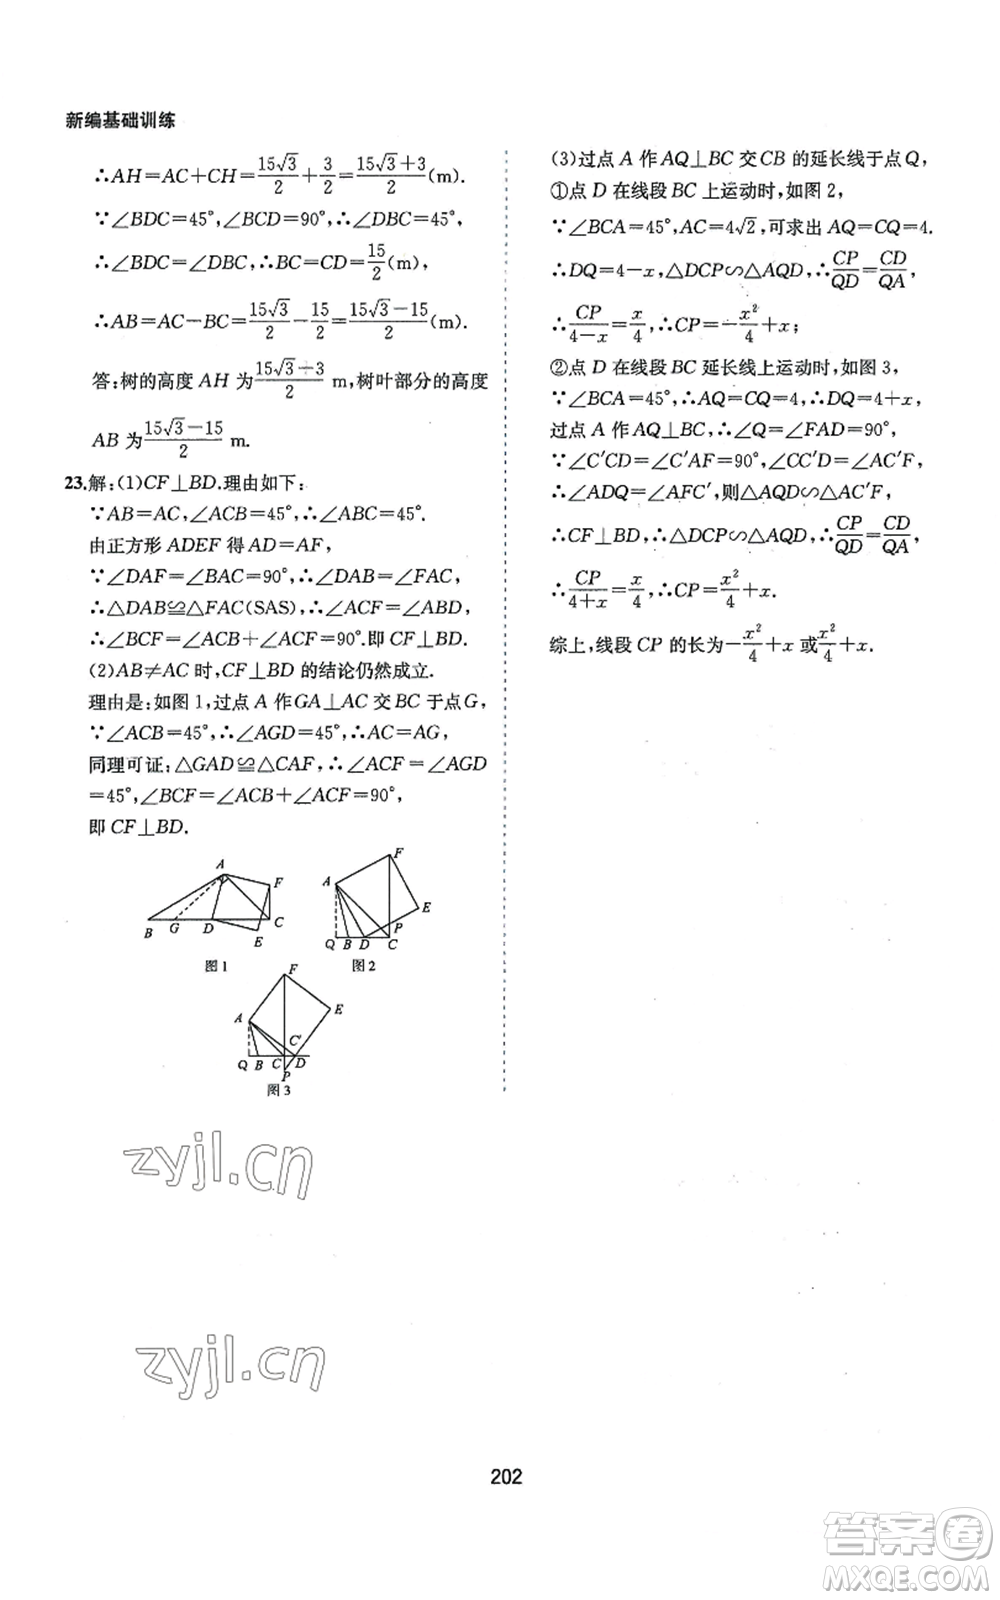 新编基础训练
∴AH=AC+CH=\frac{15√3}{2}+\frac{3}{2}=\frac{15√3+3}{2}(m).
∵∠BDC=45°,∠BCD=90°,∴∠DBC=45°,
∴∠BDC=∠DBC,∴BC=CD=\frac{15}{2}(m),
∴AB=AC-BC=\frac{15√3}{2}-\frac{15}{2}=\frac{15√3-15}{2}(m).
答:树的高度 AH 为\frac{15√3+3}{2} m,树叶部分的高度
AB 为\frac{15√3-15}{2} m.
23.解:(1)CF⊥BD.理由如下:
∵AB=AC,∠ACB=45°,∴∠ABC=45°.
由正方形 ADEF 得 AD=AF,
∵∠DAF=∠BAC=90°,∴∠DAB=∠FAC,
∴△DAB≌△FAC(SAS),∴∠ACF=∠ABD,
∴∠BCF=∠ACB+∠ACF=90°.即 CF⊥BD.
(2)AB≠AC 时,CF⊥BD 的结论仍然成立.
理由是:如图 1,过点 A 作 GA⊥AC 交 BC 于点 G,
∵∠ACB=45°,∴∠AGD=45°,∴AC=AG,
同理可证:△GAD≌△CAF,∴∠ACF=∠AGD
=45°,∠BCF=∠ACB+∠ACF=90°,
即 CF⊥BD.
A F B G D C E
图1
F A E P Q B D C
图2
F E A C' Q B C D P
图3
(3)过点 A 作 AQ⊥BC 交 CB 的延长线于点 Q,
①点 D 在线段 BC 上运动时,如图 2,
∵∠BCA=45°,AC=4√2,可求出 AQ=CQ=4.
∴DQ=4-x,△DCP∽△AQD,∴\frac{CP}{QD}=\frac{CD}{QA},
∴\frac{CP}{4-x}=\frac{x}{4},∴CP=-\frac{x²}{4}+x;
②点 D 在线段 BC 延长线上运动时,如图 3,
∵∠BCA=45°,∴AQ=CQ=4,∴DQ=4+x,
过点 A 作 AQ⊥BC,∴∠Q=∠FAD=90°,
∵∠C'CD=∠C'AF=90°,∠CC'D=∠AC'F,
∴∠ADQ=∠AFC',则△AQD∽△AC'F,
∴CF⊥BD,∴△DCP∽△AQD,∴\frac{CP}{QD}=\frac{CD}{QA},
∴\frac{CP}{4+x}=\frac{x}{4},∴CP=\frac{x²}{4}+x.
综上,线段 CP 的长为-\frac{x²}{4}+x 或\frac{x²}{4}+x.
zyjl.cn
zyjl.cn
202
答案圈
MXQE.COM